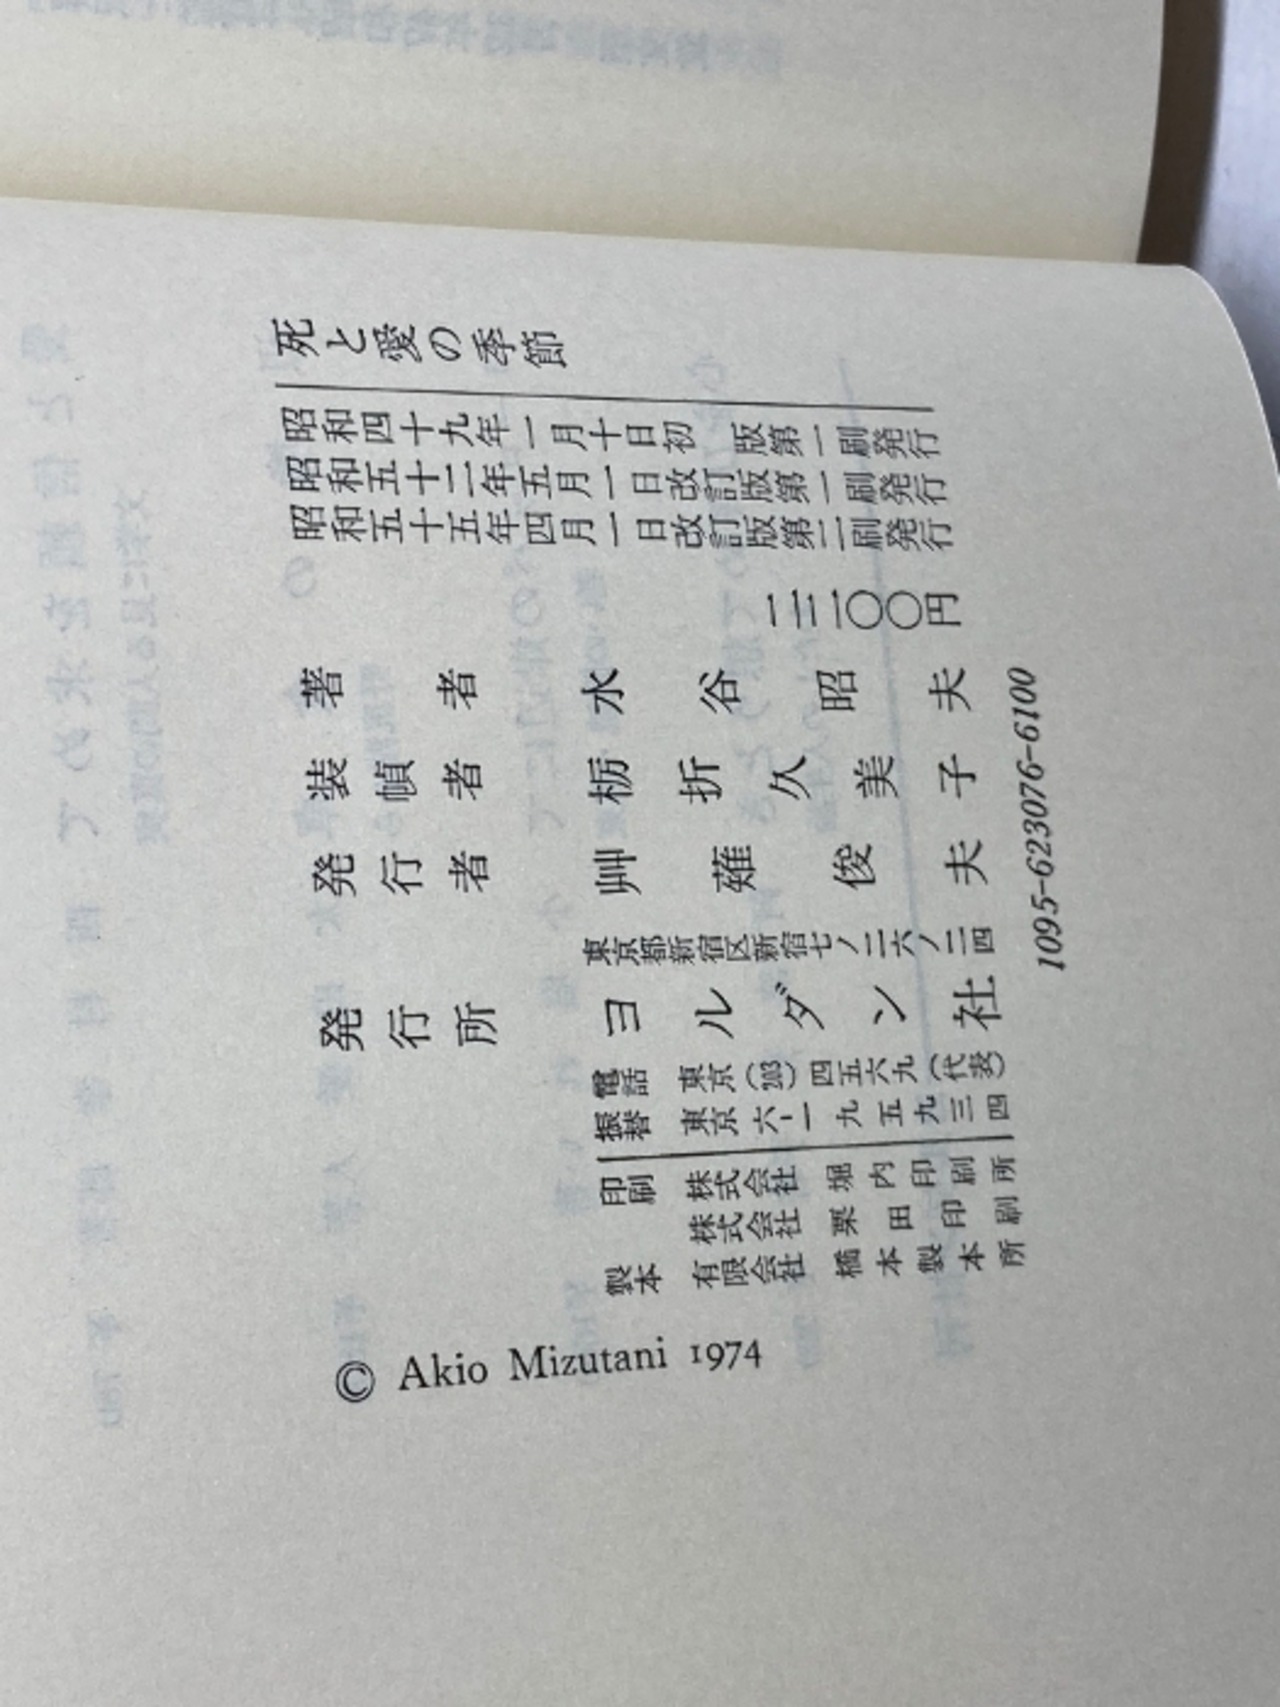 死と愛の季節
昭和四十九年一月十日初 版第一刷発行
昭和五十二年五月一日改訂版第一刷発行
昭和五十五年四月一日改訂版第二刷発行
一三〇〇円
著者 水谷昭夫
装幀者 栃折久美子
発行者 艸薙俊夫
東京都新宿区新宿七ノ二六ノ二四
発行所 ヨルダン社
電話 東京(203)四五六九(代表)
振替 東京六-一九五九三四
印刷 株式会社 堀内印刷所
株式会社 栗田印刷
製本 有限会社 橋本製本所
1095-623076-6100
© Akio Mizutani 1974